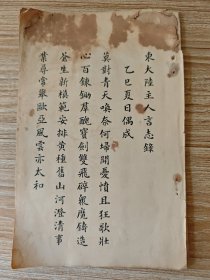 東大陸主人言志錄
乙巳夏日偶成
莫對青天喚奈何掃開憂憤且狂歌壯
心百鍊鋤群醜寶劍雙飛碎衆魔鑄造
蒼生新模範安排黃種舊山河澄清事
業尋常舉歐亞風雲亦太和